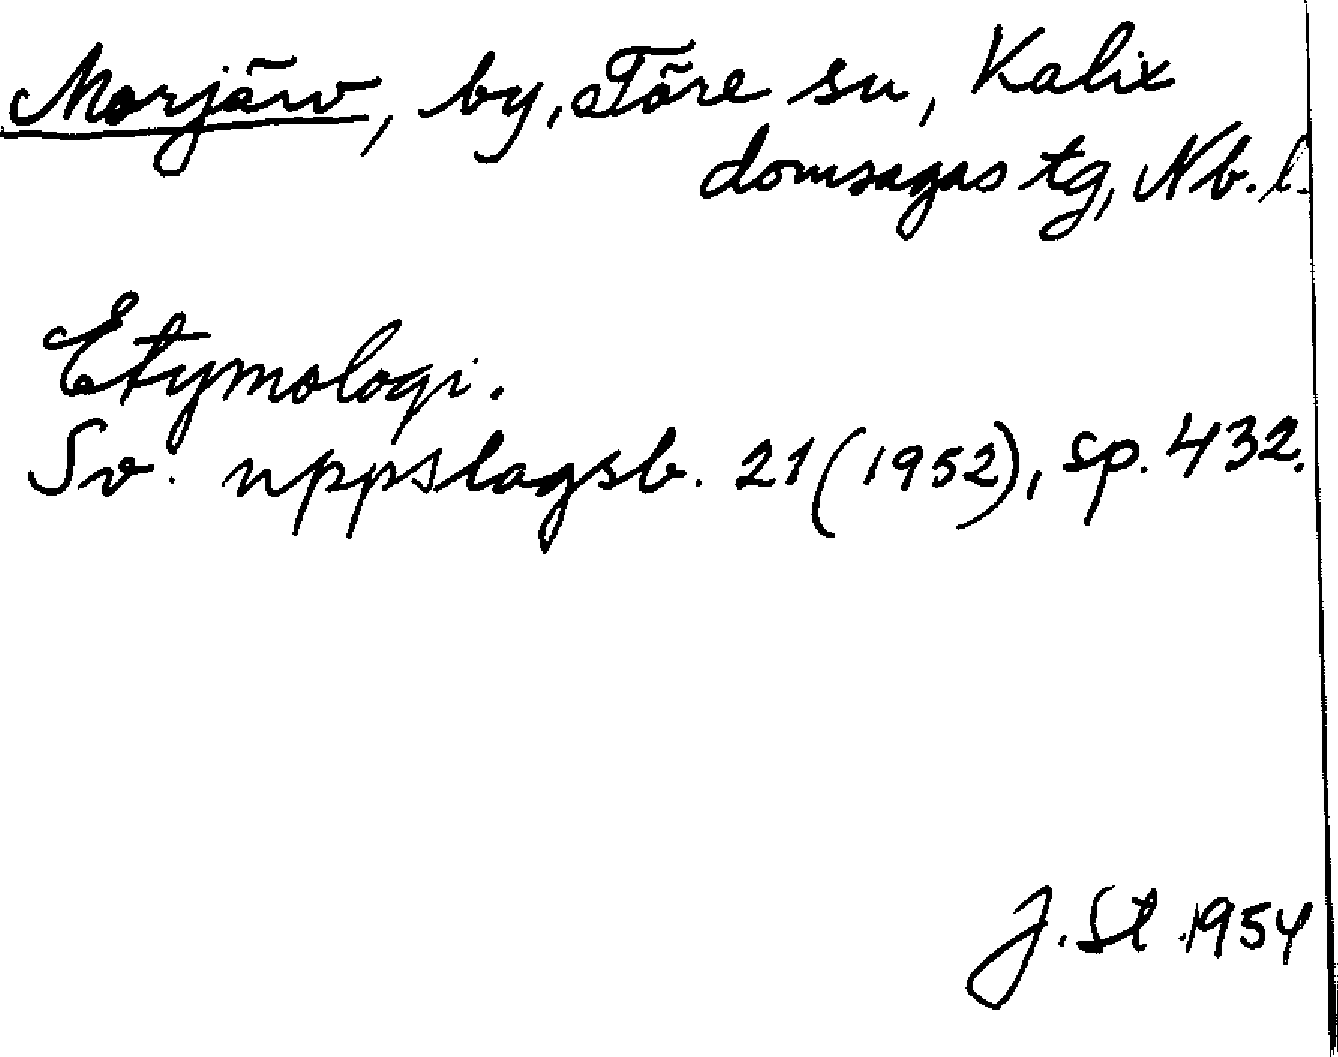 Morjärv, by, Töre sn, Kalix
domsagas tg, Nb. l.
Etymologi.
Sv. uppslagsb. 21 (1952), sp. 432.
J. St 1954